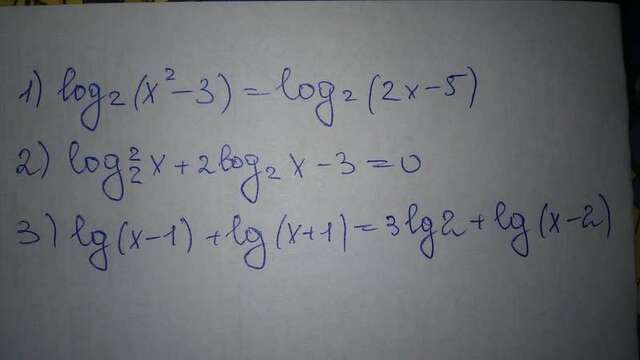 1) log₂(x²-3)=log₂(2x-5)
2) log₂²x+2log₂x-3=0
3) lg(x-1)+lg(x+1)=3lg2+lg(x-2)